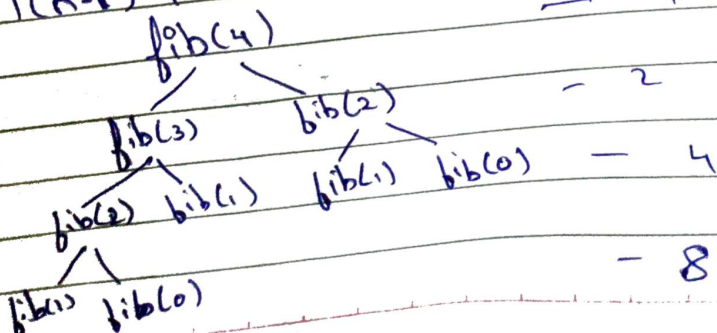 fib(4)
fib(3) fib(2) - 2
fib(2) fib(1) fib(1) fib(0) - 4
fib(1) fib(0) - 8